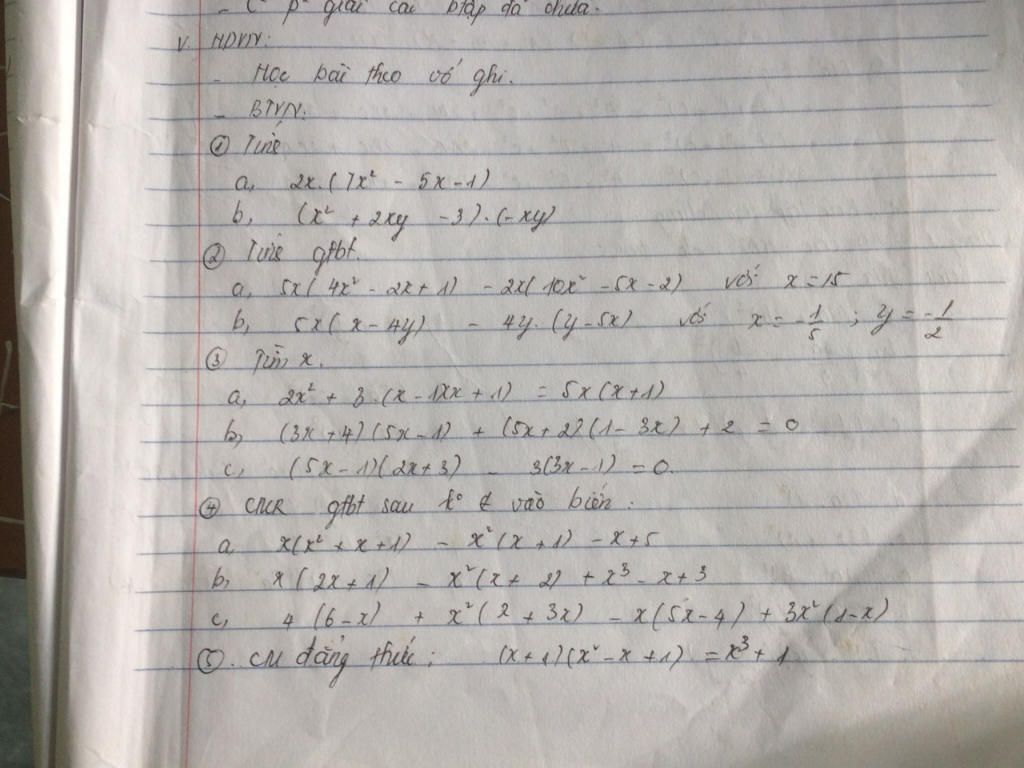 - C² p² giải các btập đã chữa.
V. HDVN:
- Học bài theo vở ghi.
- BTVN:
① Tính
a, 2x.(7x² - 5x-1)
b, (x² + 2xy -3).(-xy)
② Tính gtbt.
a, 5x(4x² - 2x+1) - 2x(10x² - 5x-2) với x=15
b, 5x(x-4y) - 4y.(y-5x) với x=-1/5 ; y=-1/2
③ Tìm x.
a, 2x² + 3.(x-1)(x+1) = 5x(x+1)
b, (3x+4)(5x-1) + (5x+2)(1-3x) + 2 = 0
c, (5x-1)(2x+3) - 3(3x-1) = 0.
④ CMR gtbt sau k° ₵ vào biến:
a x(x² + x+1) - x²(x+1) - x+5
b, x(2x+1) - x²(x+2) + x³ - x+3
c, 4(6-x) + x²(2+3x) - x(5x-4) + 3x²(1-x)
⑤. CM đẳng thức: (x+1)(x²-x+1) = x³+1